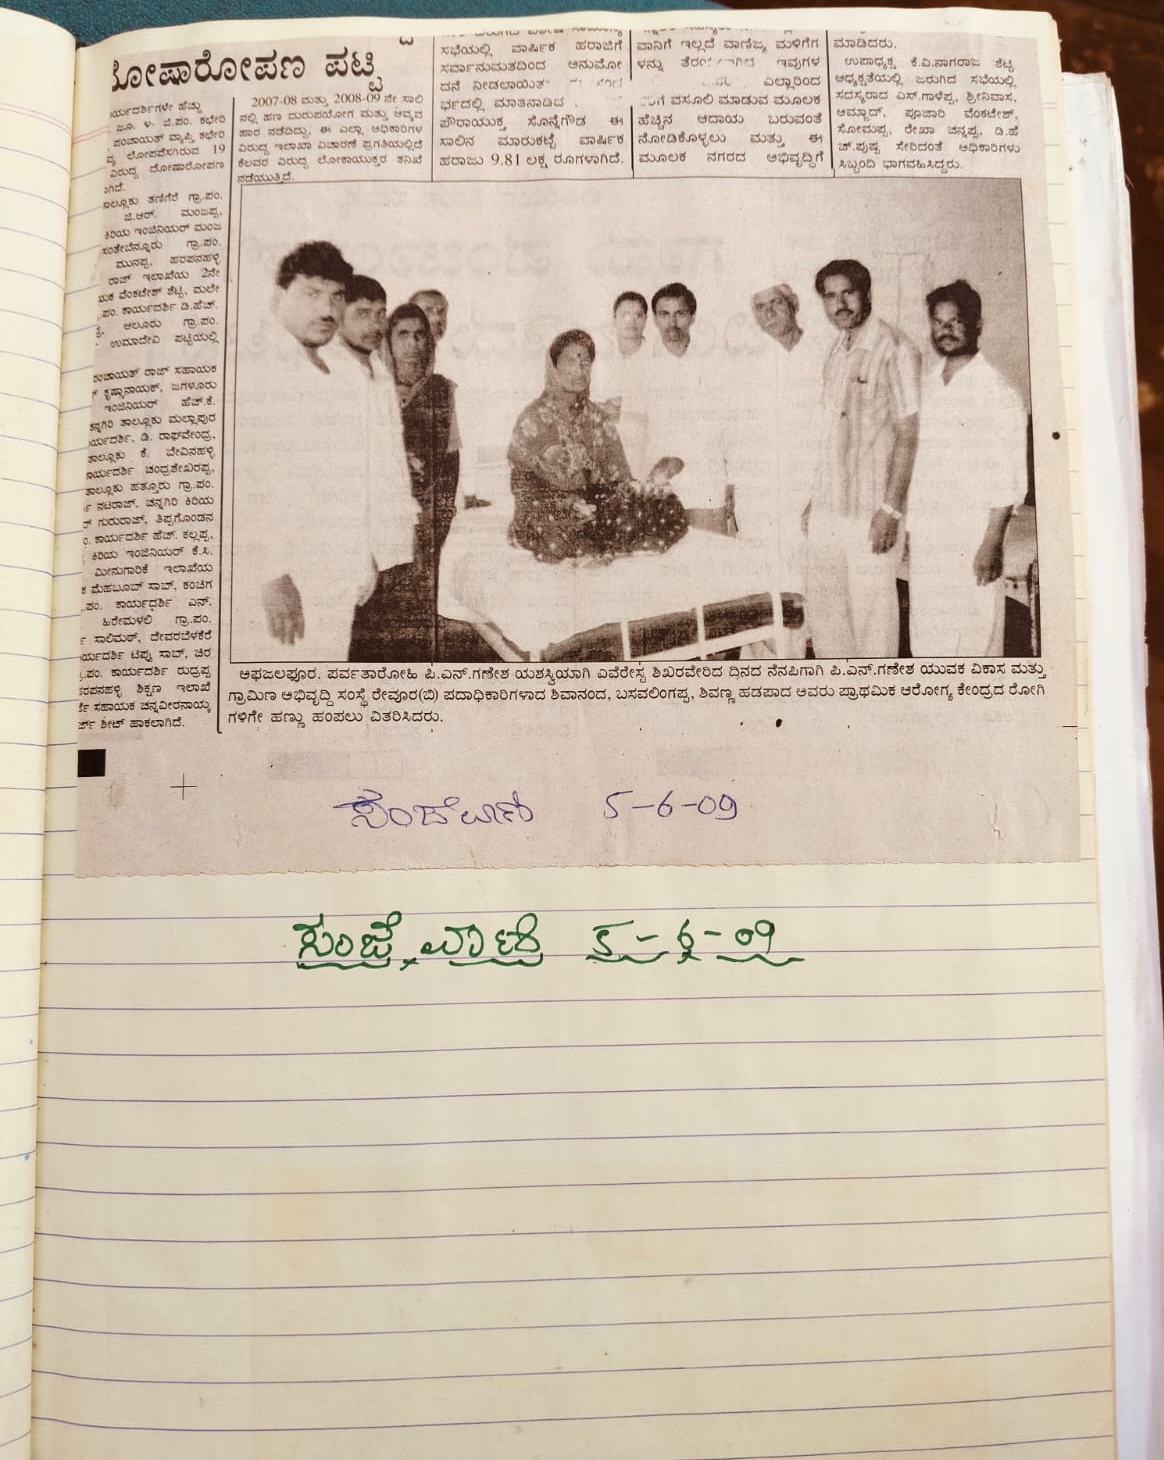 ದೋಷಾರೋಪಣ ಪಟ್ಟಿ
ರ್ಯದರ್ಶಿಗಳೇ ಹೆಚ್ಚು
ಜೂ. ೪- ಜಿ.ಪಂ. ಕಛೇರಿ
ಪಂಚಾಯತ್ ವ್ಯಾಪ್ತಿ ಕಛೇರಿ
ಲೋಪವೆಸಗಿರುವ 19
ವಿರುದ್ಧ ದೋಷಾರೋಪಣ
ಾಗಿದೆ.
ತಾಲ್ಲೂಕು ತಣಿಗೆರೆ ಗ್ರಾ.ಪಂ.
ಜಿ.ಆರ್. ಮಂಜಪ್ಪ,
ಕಿರಿಯ ಇಂಜಿನಿಯರ್ ಮಂಜ
ಸಂತೇಬೆನ್ನೂರು ಗ್ರಾ.ಪಂ.
ಮುನಪ್ಪ, ಹರಪನಹಳ್ಳಿ
ರಾಜ್ ಇಲಾಖೆಯ 2ನೇ
ವೆಂಕಟೇಶ್ ಶೆಟ್ಟಿ, ಮಲೇ
.ಪಂ. ಕಾರ್ಯದರ್ಶಿ ಡಿ.ಹೆಚ್.
ಆಲೂರು ಗ್ರಾ.ಪಂ.
ಉಮಾದೇವಿ ಪಟ್ಟಿಯಲ್ಲಿ
ಪಂಚಾಯತ್ ರಾಜ್ ಸಹಾಯಕ
ಕೃಷ್ಣಾನಾಯಕ್, ಜಗಳೂರು
ಇಂಜಿನಿಯರ್ ಹೆಚ್.ಕೆ.
ನ್ನಗಿರಿ ತಾಲ್ಲೂಕು ಮಲ್ಲಾಪುರ
ರ್ಯದರ್ಶಿ, ಡಿ. ರಾಘವೇಂದ್ರ,
ತಾಲ್ಲೂಕು ಕೆ. ಬೇವಿನಹಳ್ಳಿ
ಾರ್ಯದರ್ಶಿ ಚಂದ್ರಶೇಖರಪ್ಪ,
ತಾಲ್ಲೂಕು ಹತ್ತೂರು ಗ್ರಾ.ಪಂ.
ನಟರಾಜ್, ಚನ್ನಗಿರಿ ಕಿರಿಯ
ಗುರುರಾಜ್, ತಿಪ್ಪಗೊಂಡನ
ಂ. ಕಾರ್ಯದರ್ಶಿ ಹೆಚ್. ಕಲ್ಲಪ್ಪ,
ಕಿರಿಯ ಇಂಜಿನಿಯರ್ ಕೆ.ಸಿ.
ಮೀನುಗಾರಿಕೆ ಇಲಾಖೆಯ
ಮೆಹಬೂಬ್ ಸಾಬ್, ಕಂಚಿಗ
.ಪಂ. ಕಾರ್ಯದರ್ಶಿ ಎನ್.
ಹಿರೇಮಳಲಿ ಗ್ರಾ.ಪಂ.
ಸಾಲಿಮಠ್, ದೇವರಬೆಳಕೆರೆ
ರ್ಯದರ್ಶಿ ಟಿಪ್ಪು ಸಾಬ್, ಚಿರ
.ಪಂ. ಕಾರ್ಯದರ್ಶಿ ರುದ್ರಪ್ಪ
ರಪನಹಳ್ಳಿ ಶಿಕ್ಷಣ ಇಲಾಖೆ
ಸಹಾಯಕ ಚನ್ನವೀರನಾಯ್ಕ
ರ್ಜ್ ಶೀಟ್ ಹಾಕಲಾಗಿದೆ.
2007-08 ಮತ್ತು 2008-09 ನೇ ಸಾಲಿ
ನಲ್ಲಿ ಹಣ ದುರುಪಯೋಗ ಮತ್ತು ಅವ್ಯವ
ಹಾರ ನಡೆದಿದ್ದು, ಈ ಎಲ್ಲಾ ಅಧಿಕಾರಿಗಳ
ವಿರುದ್ಧ ಇಲಾಖಾ ವಿಚಾರಣೆ ಪ್ರಗತಿಯಲ್ಲಿದೆ
ಕೆಲವರ ವಿರುದ್ಧ ಲೋಕಾಯುಕ್ತರ ತನಿಖೆ
ನಡೆಯುತ್ತಿದೆ.
ಸಭೆಯಲ್ಲಿ ವಾರ್ಷಿಕ ಹರಾಜಿಗೆ
ಸರ್ವಾನುಮತದಿಂದ ಅನುಮೋ
ದನೆ ನೀಡಲಾಯಿತು
ಭ‍ದಲ್ಲಿ ಮಾತನಾಡಿದ
ಪೌರಾಯುಕ್ತ ಸೊನ್ನೆಗೌಡ ಈ
ಸಾಲಿನ ಮಾರುಕಟ್ಟೆ ವಾರ್ಷಿಕ
ಹರಾಜು 9.81 ಲಕ್ಷ ರೂಗಳಾಗಿದೆ.
ವಾನಿಗೆ ಇಲ್ಲದೆ ವಾಣಿಜ್ಯ ಮಳಿಗೆಗ
ಳನ್ನು ಇವುಗಳ
ಎಲ್ಲಾರಿಂದ
ವಸೂಲಿ ಮಾಡುವ ಮೂಲಕ
ಹೆಚ್ಚಿನ ಆದಾಯ ಬರುವಂತೆ
ನೋಡಿಕೊಳ್ಳಲು ಮತ್ತು ಈ
ಮೂಲಕ ನಗರದ ಅಭಿವೃದ್ಧಿಗೆ
ಮಾಡಿದರು.
ಉಪಾಧ್ಯಕ್ಷ ಕೆ.ವಿ.ನಾಗರಾಜ ಶೆಟ್ಟಿ
ಅಧ್ಯಕ್ಷತೆಯಲ್ಲಿ ಜರುಗಿದ ಸಭೆಯಲ್ಲಿ
ಸದಸ್ಯರಾದ ಎಸ್.ಗಾಳೆಪ್ಪ, ಶ್ರೀನಿವಾಸ,
ಅಮ್ಜಾದ್, ಪೂಜಾರಿ ವೆಂಕಟೇಶ್,
ಸೋಮಪ್ಪ, ರೇಖಾ ಚನ್ನಪ್ಪ, ಡಿ.ಹೆ
ಚ್.ಪುಷ್ಪ ಸೇರಿದಂತೆ ಅಧಿಕಾರಿಗಳು
ಸಿಬ್ಬಂದಿ ಭಾಗವಹಿಸಿದ್ದರು.
ಅಫಜಲಪೂರ. ಪರ್ವತಾರೋಹಿ ಪಿ.ಎನ್.ಗಣೇಶ ಯಶಸ್ವಿಯಾಗಿ ಎವೆರೇಸ್ಟ ಶಿಖರವೇರಿದ ದಿನದ ನೆನಪಿಗಾಗಿ ಪಿ.ಎನ್.ಗಣೇಶ ಯುವಕ ವಿಕಾಸ ಮತ್ತು
ಗ್ರಾಮಿಣ ಅಭಿವೃದ್ದಿ ಸಂಸ್ಥೆ ರೇವೂರ(ಬಿ) ಪದಾಧಿಕಾರಿಗಳಾದ ಶಿವಾನಂದ, ಬಸವಲಿಂಗಪ್ಪ, ಶಿವಣ್ಣ ಹಡಪಾದ ಅವರು ಪ್ರಾಥಮಿಕ ಆರೋಗ್ಯ ಕೇಂದ್ರದ ರೋಗಿ
ಗಳಿಗೇ ಹಣ್ಣು ಹಂಪಲು ವಿತರಿಸಿದರು.
ಸಂಜೆವಾಣಿ 5-6-09
ಸಂಜೆ ವಾಣಿ ೫-೬-೦೯